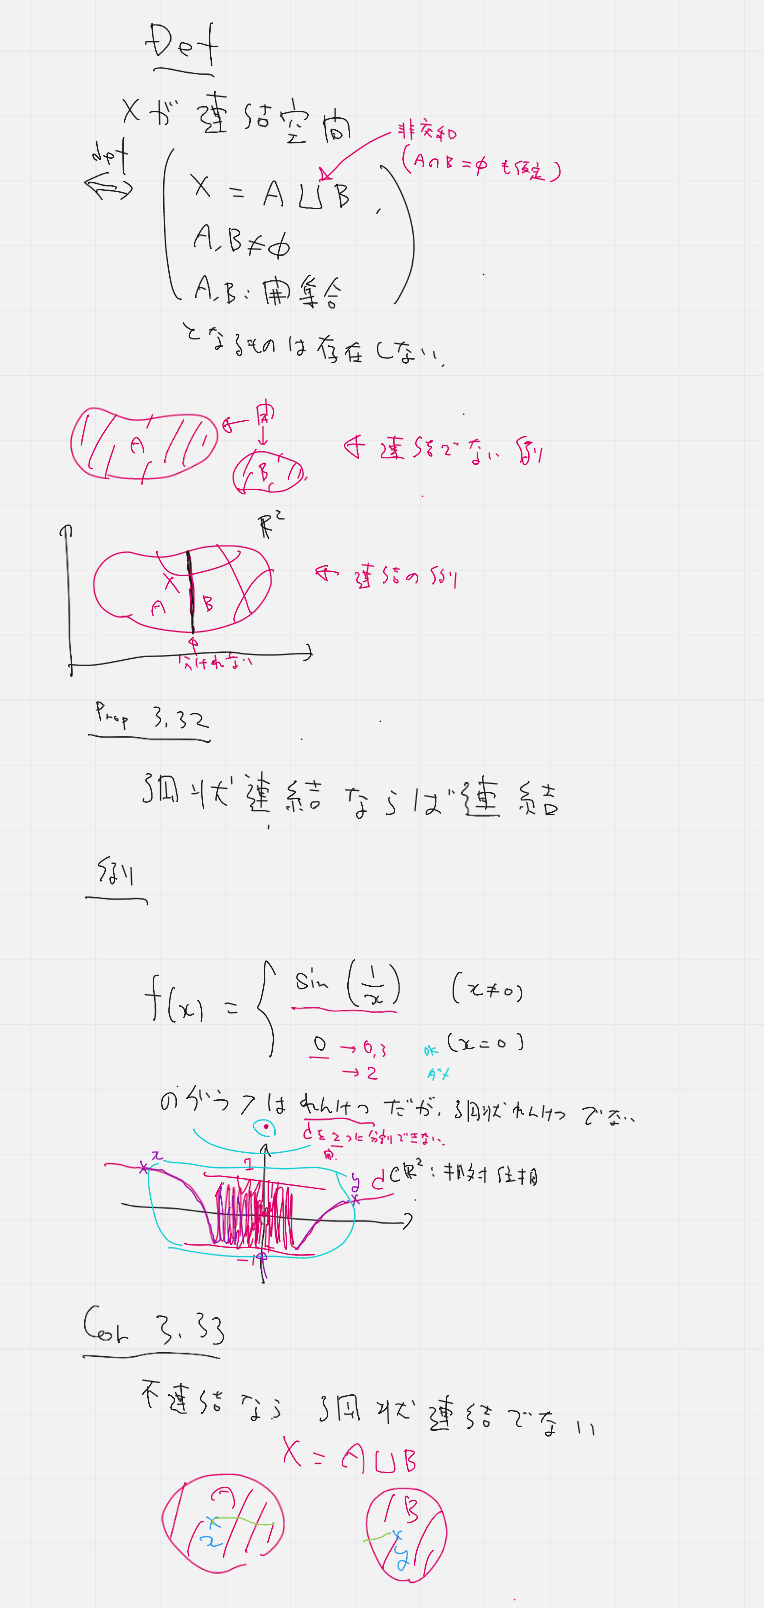 Def
Xが連結空間
def
⇔
非交和
(A∩B=φも仮定)
X = A ⊔ B,
A,B≠φ
A,B:開集合
となるものは存在しない.
A
開
B
← 連結でない例
R²
X
A B
← 連結の例
分けれない
Prop 3.32
弧状連結ならば連結
例
f(x) = { sin(1/x) (x≠0)
0 →0,3 ok (x=0)
→2 ダメ
のグラフはれんけつだが,弧状れんけつでない
Cを2つに分割できない.
開
x
1
y
C⊂R²:相対位相
-1
Cor 3.33
不連結なら弧状連結でない
X = A⊔B
A
B
x
y